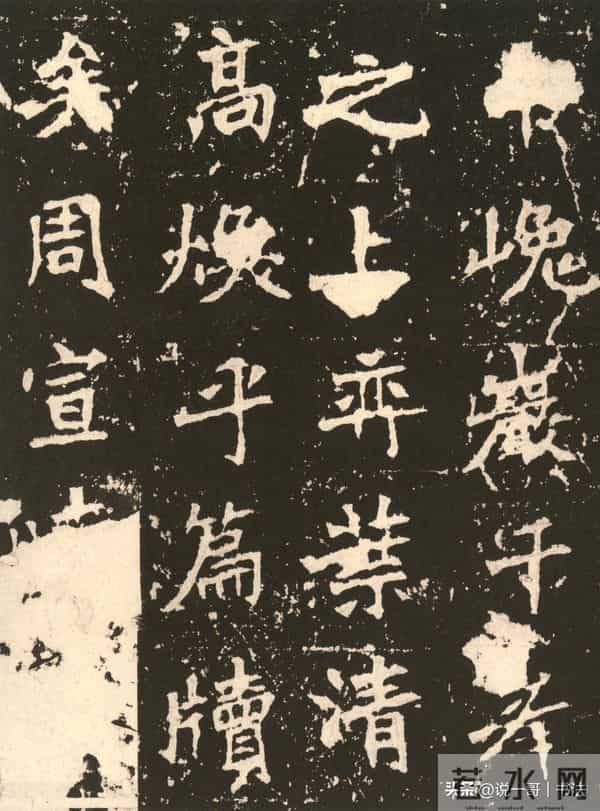 巖千
之上弈葉清
高煥乎篇牘
矣周宣
头条@说一哥|书法
若水网